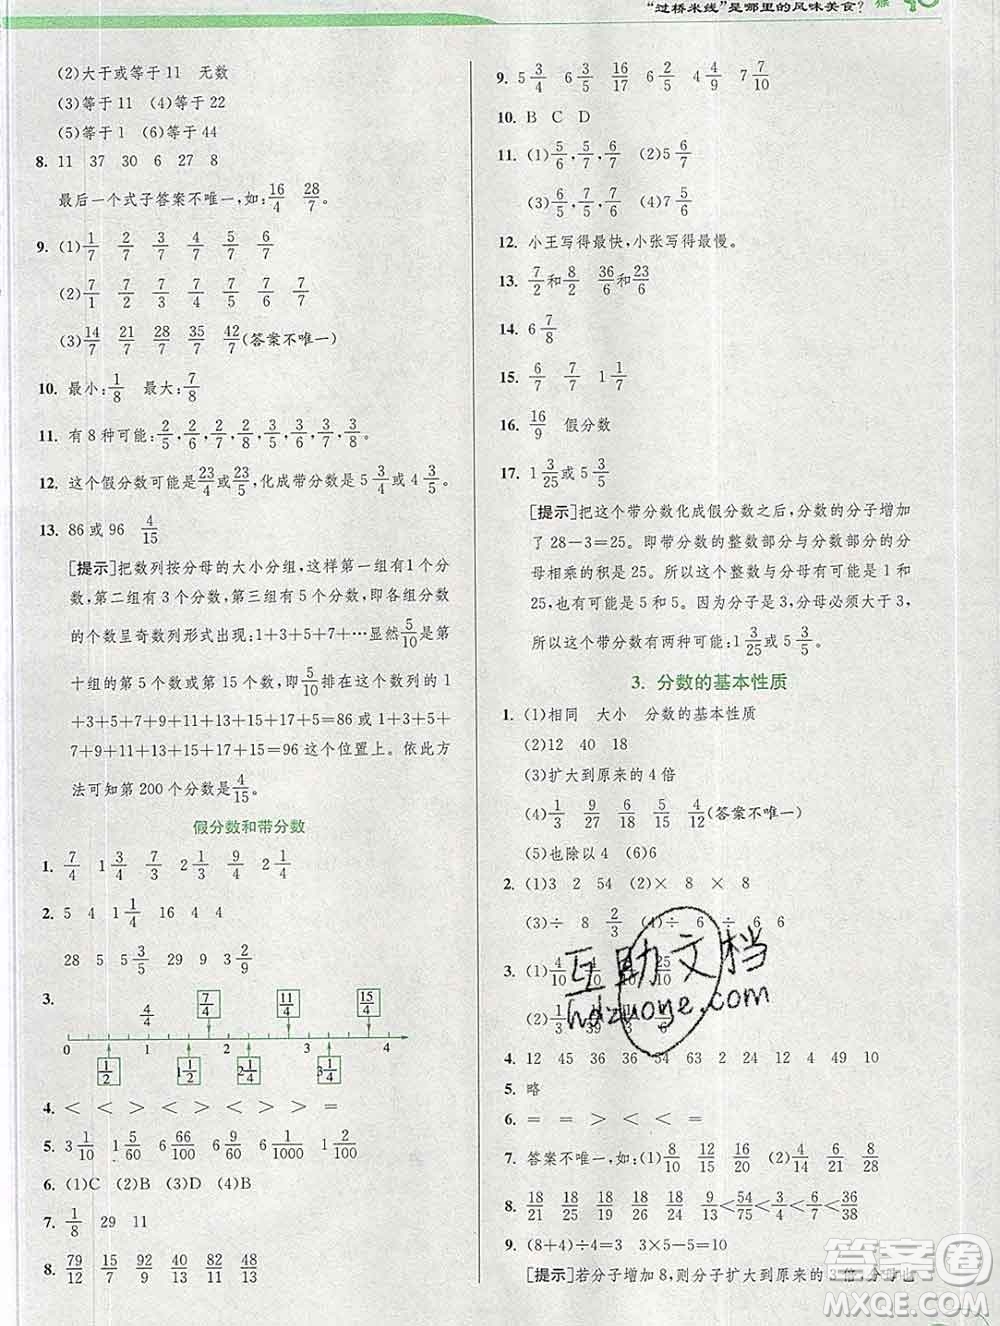 "过桥米线"是哪里的风味美食? 猴
(2)大于或等于 11 无数
(3)等于 11 (4)等于 22
(5)等于 1 (6)等于 44
8. 11 37 30 6 27 8
最后一个式子答案不唯一,如: 16/4 28/7。
9. (1) 1/7 2/7 3/7 4/7 5/7 6/7
(2) 7/1 7/2 7/3 7/4 7/5 7/6 7/7
(3) 14/7 21/7 28/7 35/7 42/7 (答案不唯一)
10. 最小: 1/8 最大: 7/8
11. 有 8 种可能: 2/5, 2/6, 2/7, 2/8, 3/5, 3/6, 3/7, 3/8。
12. 这个假分数可能是 23/4 或 23/5, 化成带分数是 5 3/4 或 4 3/5。
13. 86 或 96 4/15
[提示]把数列按分母的大小分组,这样第一组有 1 个分
数,第二组有 3 个分数,第三组有 5 个分数,即各组分数
的个数呈奇数列形式出现:1+3+5+7+⋯显然 5/10 是第
十组的第 5 个数或第 15 个数,即 5/10 排在这个数列的 1
+3+5+7+9+11+13+15+17+5=86 或 1+3+5+
7+9+11+13+15+17+15=96 这个位置上。依此方
法可知第 200 个分数是 4/15。
假分数和带分数
1. 7/4 1 3/4 7/3 2 1/3 9/4 2 1/4
2. 5 4 1 1/4 16 4 4
28 5 5 29 9 29 3 2/9
3. 4/4 7/4 11/4 15/4
0 1 2 3 4
1/2 1 1/2 2 1/4 3 1/4
4. < < > < > > > =
5. 3 1/10 1 5/60 6 66/100 6 9/60 3 1/1000 1 2/100
6. (1)C (2)B (3)A (4)B
7. 1/8 29 11
8. 79/12 15/7 92/13 133/16 82/9 58/13
9. 5 3/4 6 3/5 16/17 6 4/5 4/9 7 7/10
10. B C D
11. (1) 5/6, 5/7, 6/7 (2)5 6/7
(3) 6/5, 7/5, 7/6 (4)7 5/6
12. 小王写得最快,小张写得最慢。
13. 7/2 和 8/2 36/6 和 23/6
14. 6 7/8
15. 6/7 7/7 1 1/7
16. 16/9 假分数
17. 1 3/25 或 5 3/5
[提示]把这个带分数化成假分数之后,分数的分子增加
了 28-3=25。即带分数的整数部分与分数部分的分
母相乘的积是 25。所以这个整数与分母可能是 1 和
25,也有可能是 5 和 5。因为分子是 3,分母必须大于 3,
所以这个带分数有两种可能:1 3/25 或 5 3/5。
3. 分数的基本性质
1. (1)相同 大小 分数的基本性质
(2)12 40 18
(3)扩大到原来的 4 倍
(4) 1/3 9/27 6/18 5/15 4/12 (答案不唯一)
(5)也除以 4 (6)6
2. (1)3 2 54 (2)× 8 × 8
(3)÷ 8 2/3 (4)÷ 6 ÷ 6 6
3. (1) 4/10
(2)
4. 12 45 10 36 54 63 24 49 10
5. 略
6. = = > < < =
7. 答案不唯一,如:(1) 8/10 12/15 16/20 (2) 4/10 6/15 8/20
8. 18/21 18/25 18/20 18/24 9/12<54/75<3/4<6/7<36/38
9. (8+4)÷4=3 3×5-5=10
[提示]若分子增加 8,则分子扩大到原来的 3 倍,分母也
互助文档
hdzuoye.com
答案圈
MXQE.COM